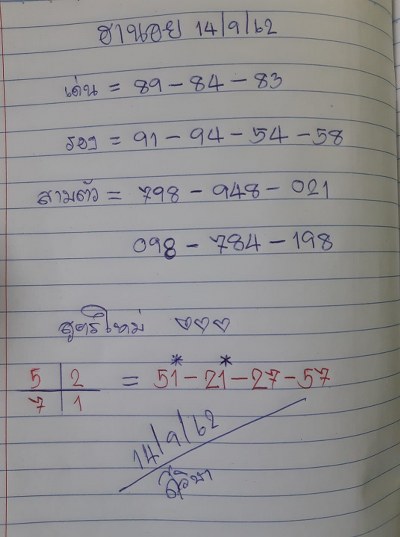 ฮานอย 14/9/62
เด่น = 89 - 84 - 83
รอง = 91 - 94 - 54 - 58
สามตัว = 798 - 948 - 021
098 - 784 - 198
สูตรใหม่ ♡♡♡
* *
5 2 = 51 - 21 - 27 - 57
7 1
14/9/62